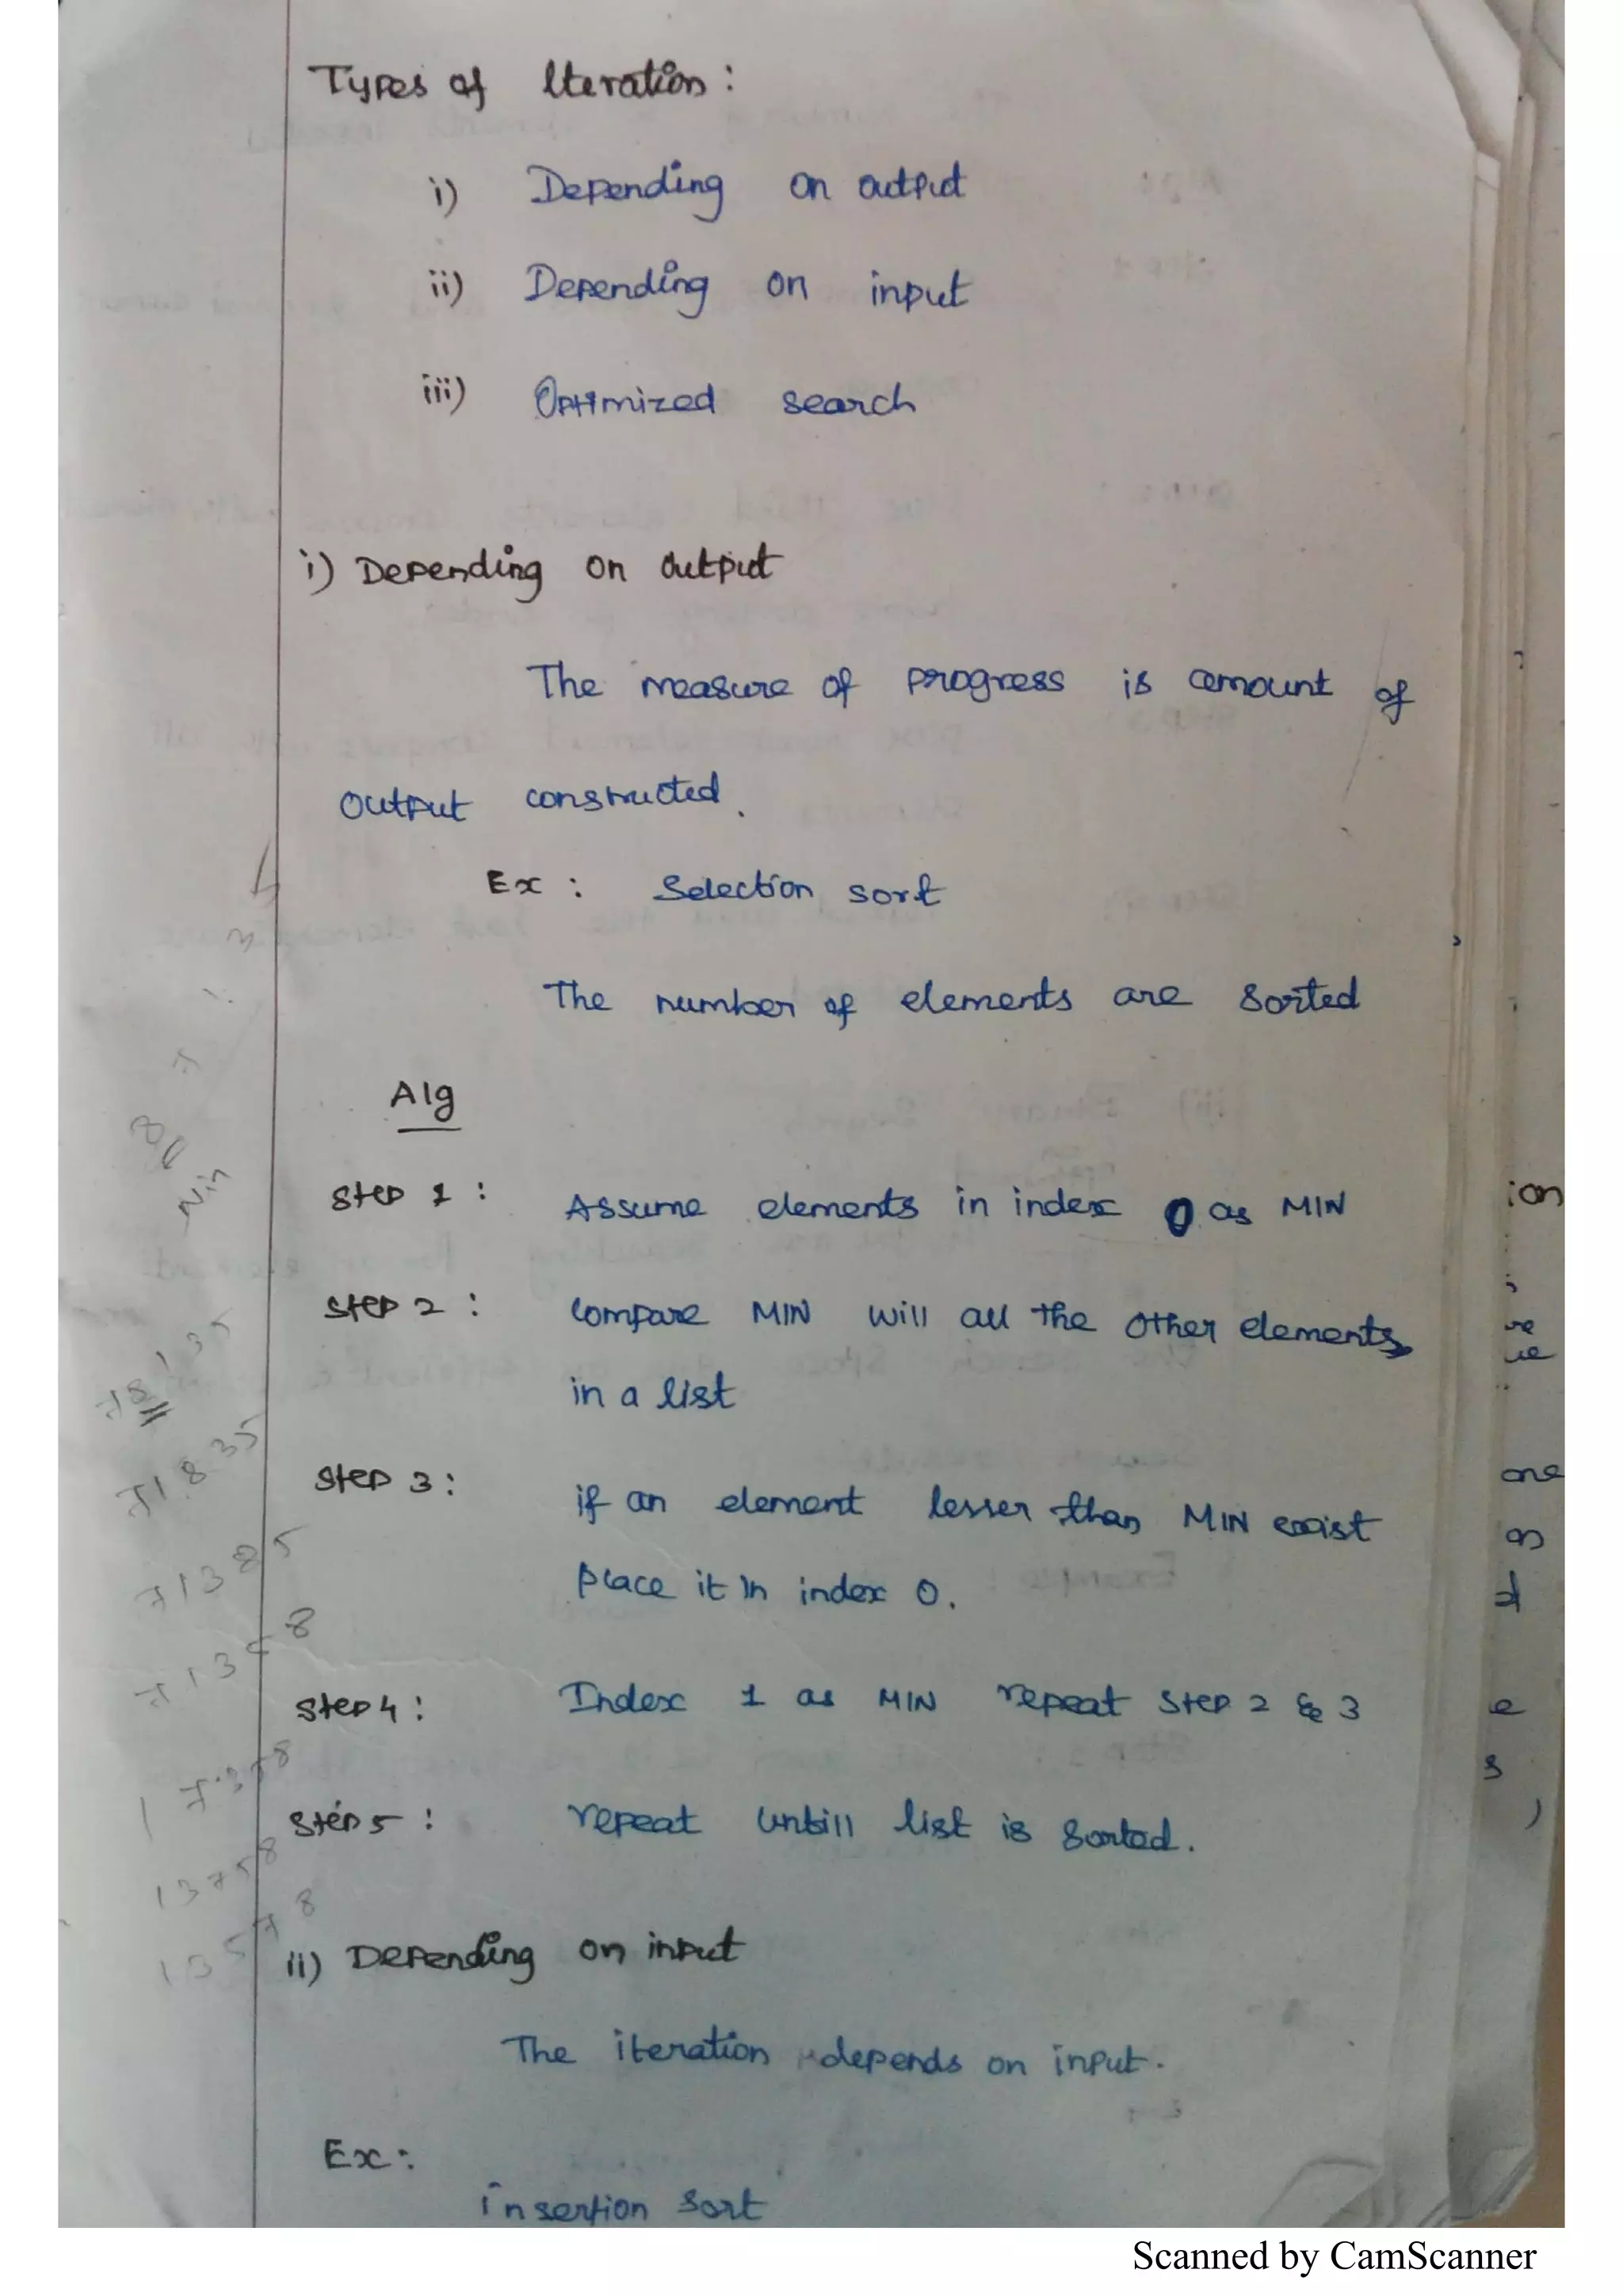 Types of Iteration :
i) Depending on output
ii) Depending on input
iii) Optimized search
i) Depending on output
The measure of progress is amount of
output constructed.
Ex : Selection sort
The number of elements are sorted
Alg
Step 1 : Assume elements in index 0 as MIN
Step 2 : Compare MIN will all the other elements
in a list
Step 3 : if an element lesser than MIN exist
place it in index 0.
Step 4 : Index 1 as MIN repeat step 2 & 3
Step 5 : repeat untill list is sorted.
ii) Depending on input
The iteration depends on input.
Ex :
insertion sort
Scanned by CamScanner